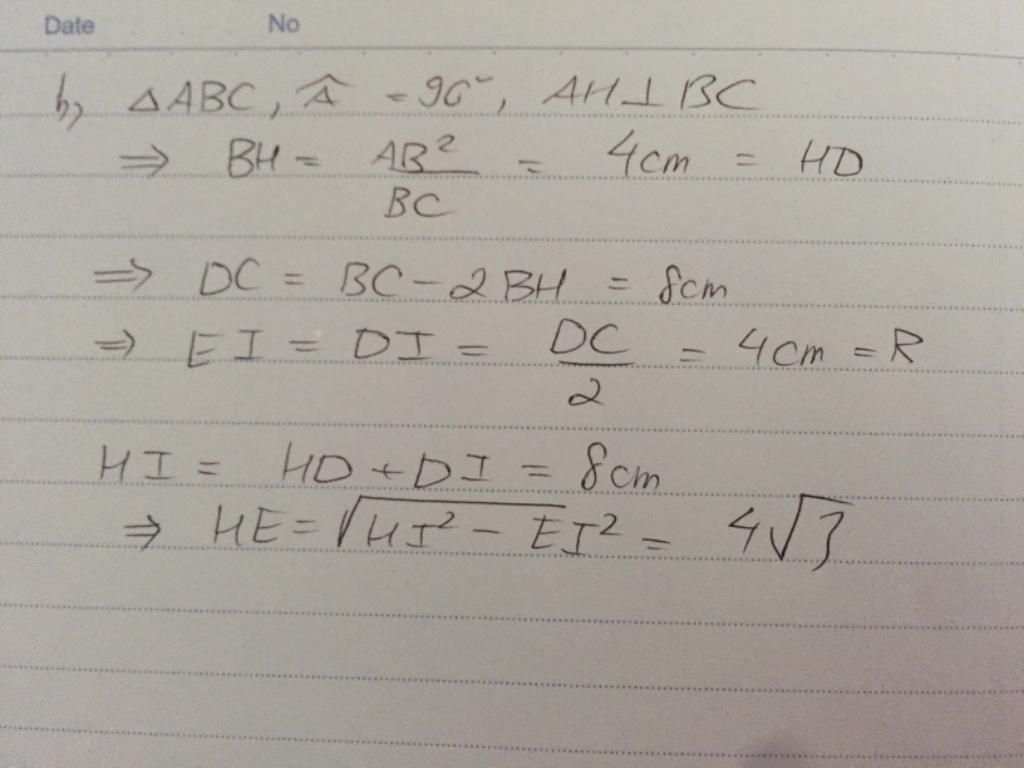 Date No
b, △ABC, Â = 90°, AH⊥BC
⇒ BH = AB²/BC = 4cm = HD
⇒ DC = BC - 2BH = 8cm
⇒ EI = DI = DC/2 = 4cm = R
HI = HD + DI = 8cm
⇒ HE = √(HI² - EI²) = 4√3